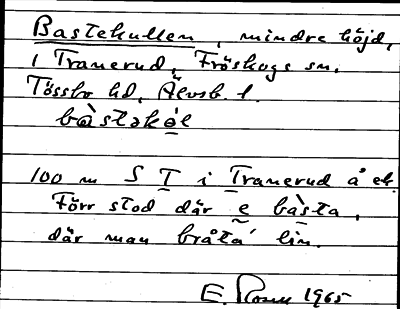 Bastekullen, mindre höjd,
i Tranerud, Fröskogs sn.
Tössbo hd, Älvsb. l.
bàstəkəl
100 m S T i Tranerud å ek.
Förr stod där e bàsta,
där man bråta' lin.
E. 1965